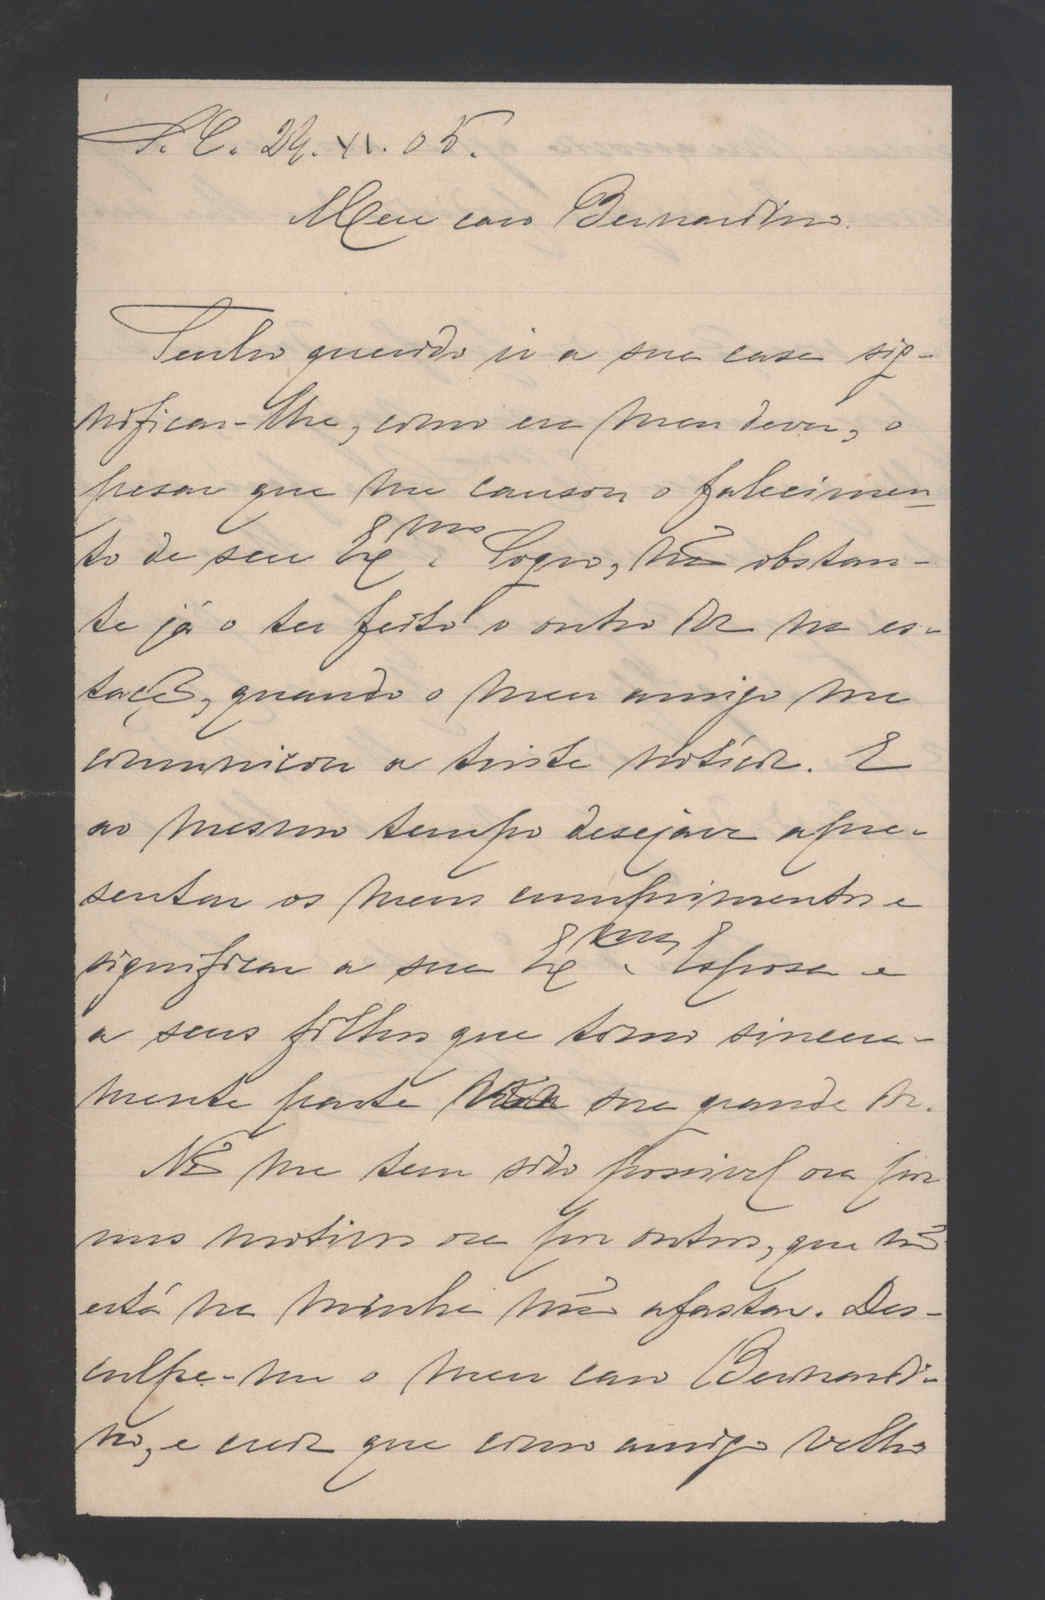 S. C. 29. XI. 05.
Meu caro Bernardino.
Tenho querido ir a sua casa sig-
nificar-lhe, como era meu dever, o
pesar que me causou o falecimen-
to de seu Exmo. Sogro, não obstan-
te já o ter feito o outro dia na es-
tação, quando o meu amigo me
comunicou a triste notícia. E
ao mesmo tempo desejava apre-
sentar os meus cumprimentos e
significar a sua Exma. Esposa e
a seus filhos que tomo sincera-
mente parte na sua grande dor.
Não me tem sido possivel ora por
uns motivos ora por outros, que não
está na minha mão afastar. Des-
culpe-me o meu caro Bernardi-
no, e creia que como amigo velho